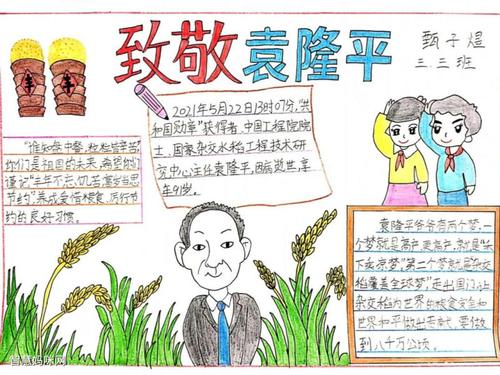 致敬袁隆平
甄子煜
三三班
丰 丰
2021年5月22日13时07分,"共
和国勋章"获得者、中国工程院院
士、国家杂交水稻工程技术研
究中心主任袁隆平,因病逝世,享
年91岁。
"谁知盘中餐,粒粒皆辛苦"
你们是祖国的未来,希望你们
谨记"丰年不忘饥苦
节约"养成爱惜粮食,厉行节
约的良好习惯。
袁隆平爷爷有两个梦,一
个梦就是高产,更高产,就是"禾
下乘凉梦"第二个梦就是"杂交
稻覆盖全球梦"走出国门,让
杂交稻为世界的粮食安全和
世界和平做出贡献,要做
到八千万公顷。
智慧妈咪网